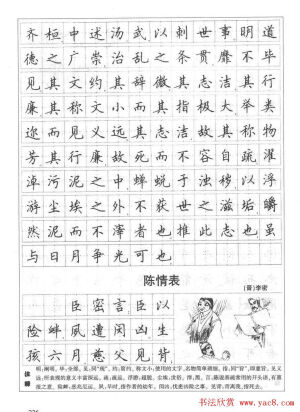 齐桓中述汤武以刺世事明道
德之广崇治乱之条贯靡不毕
见其文约其辞微其志洁其行
廉其称文小而其指极大举类
迩而见义远其志洁故其称物
芳其行廉故死而不容自疏濯
淖污泥之中蝉蜕于浊秽以浮
游尘埃之外不获世之滋垢皭
然泥而不滓者也推此志也虽
与日月争光可也
陈情表
(晋)李密
臣密言臣以
险衅夙遭闵凶生
孩六月慈父见背
书法欣赏
www.yac8.com